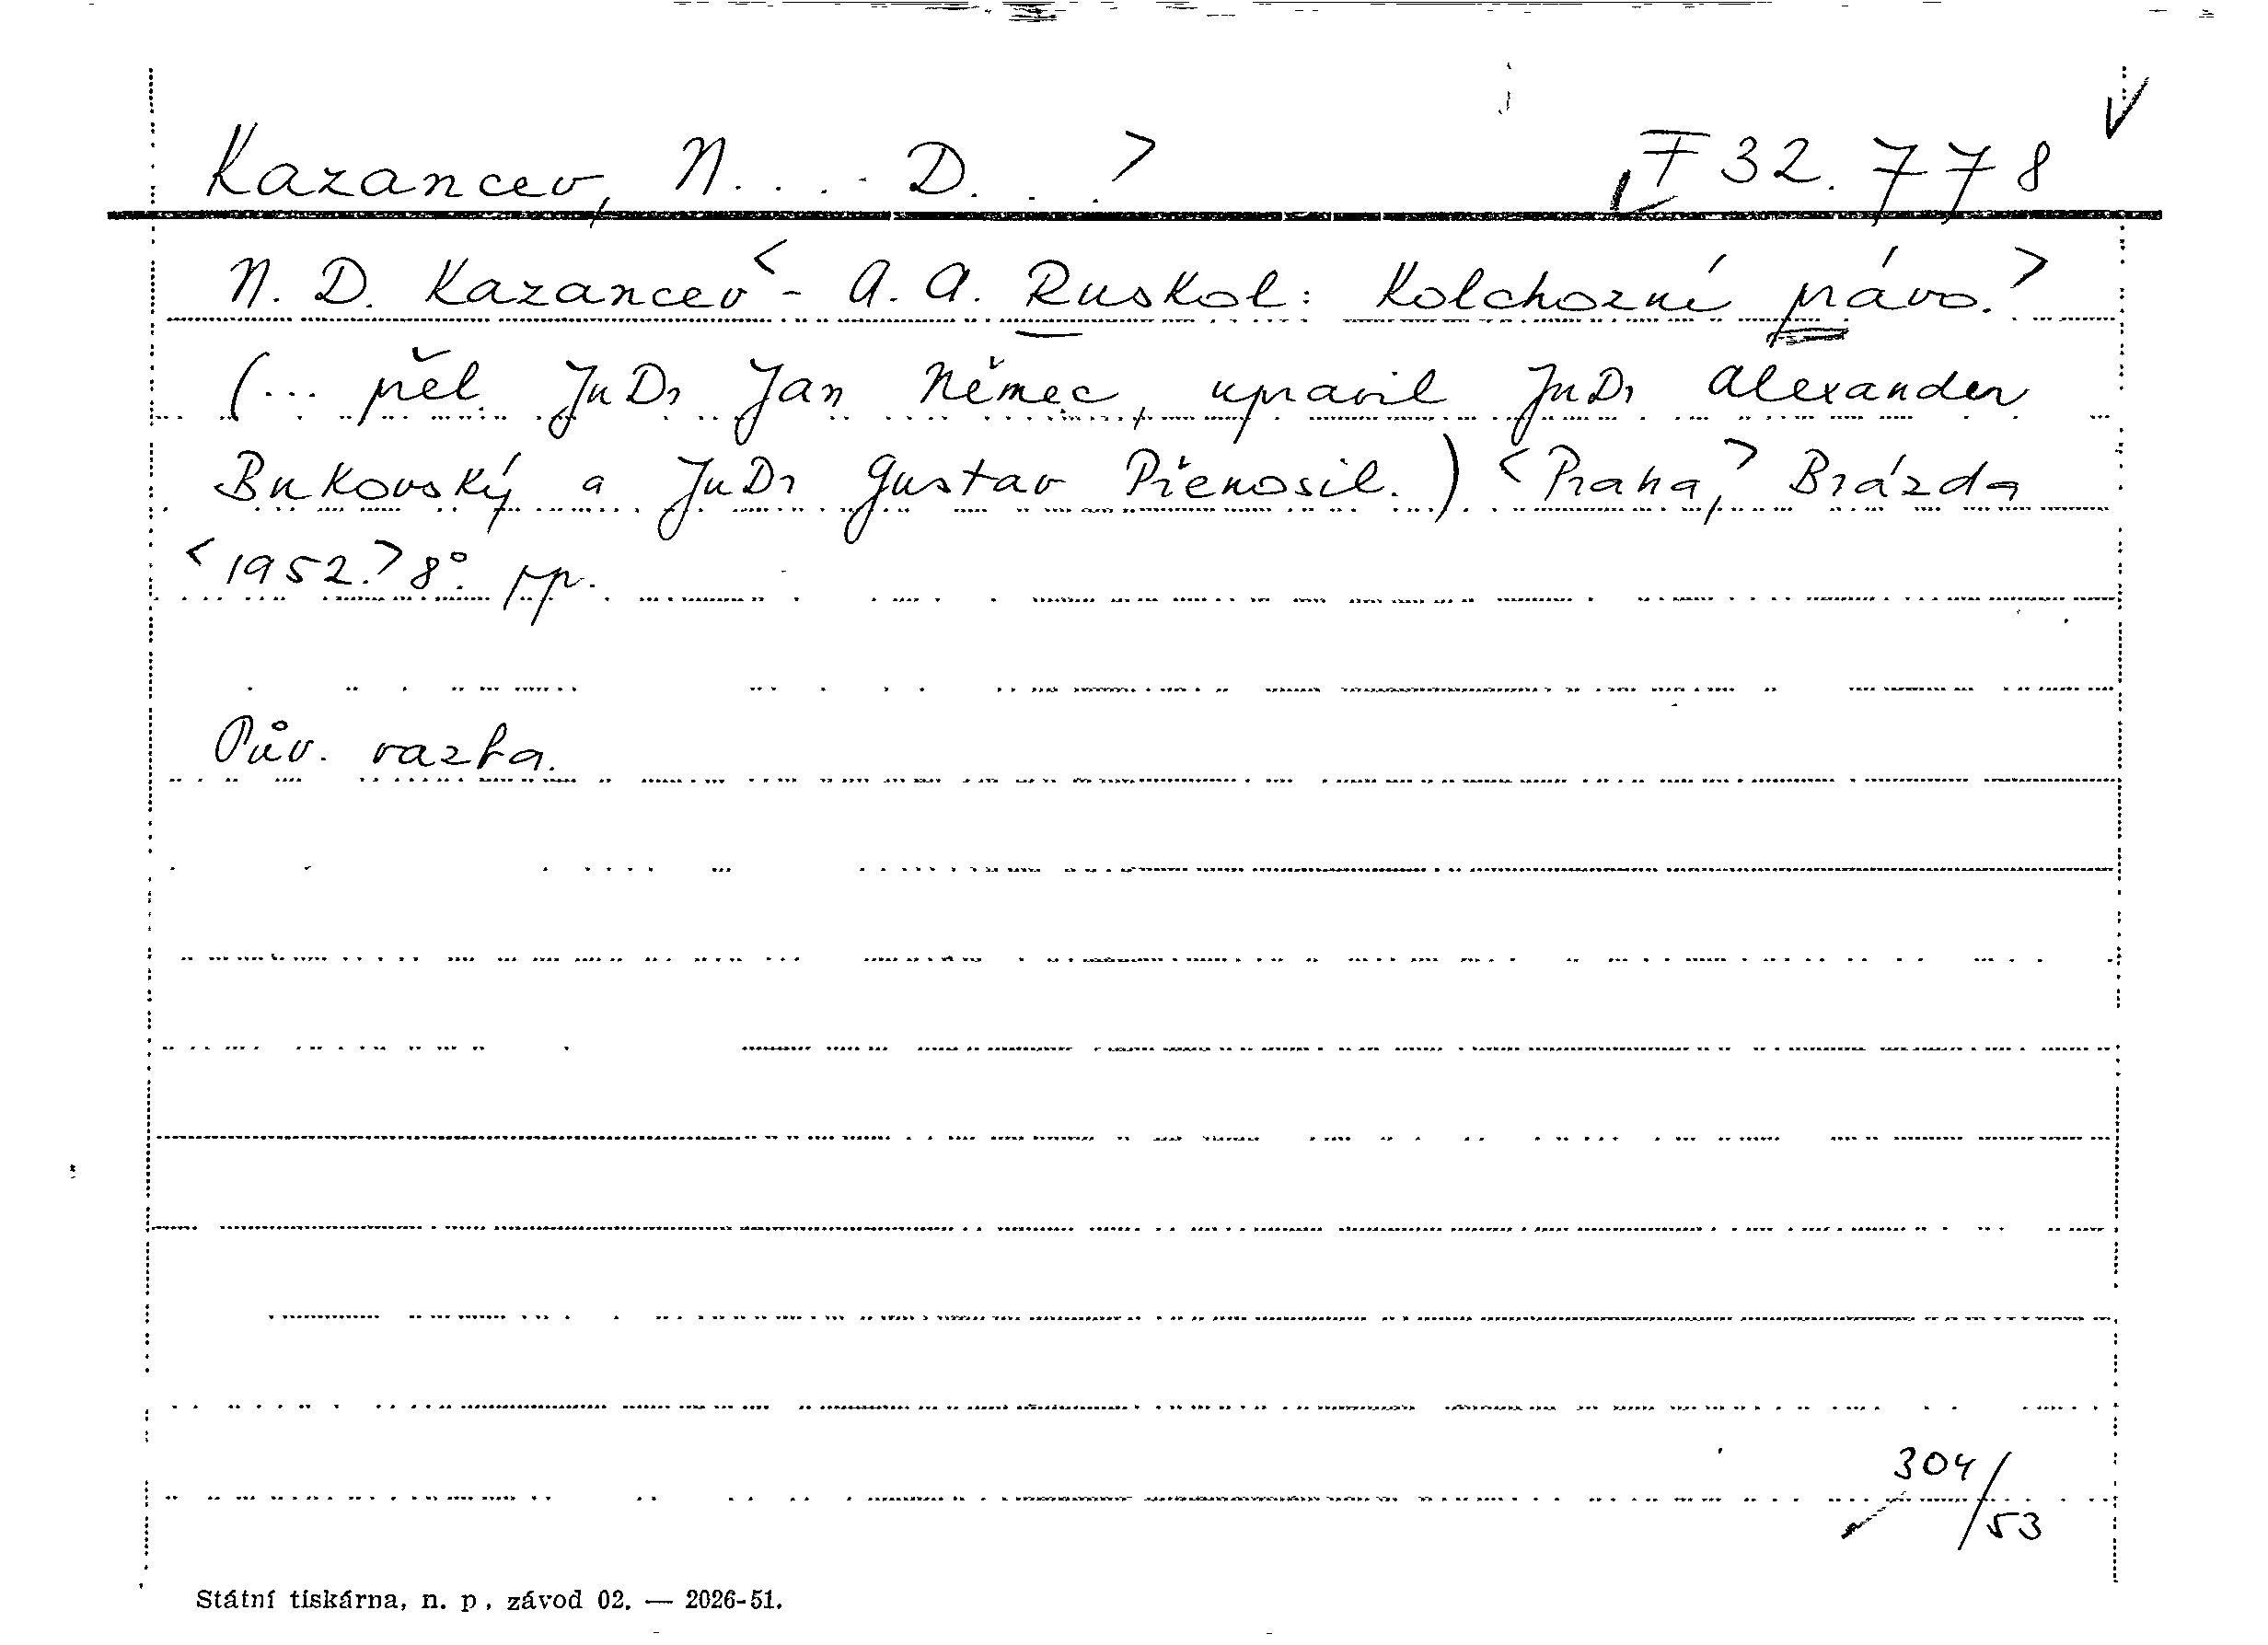 Kazancev, N. . . . D. . . > F 32.778
N. D. Kazancev < - A. A. Ruskol: Kolchozní právo. >
(... přel. JuDr Jan Němec, upravil JuDr Alexander
Bukovský a JuDr Gustav Přenosil.) < Praha, > Brázda
< 1952. > 8°. pp.
Pův. vazba.
304/53
Státní tiskárna, n. p., závod 02. — 2026-51.